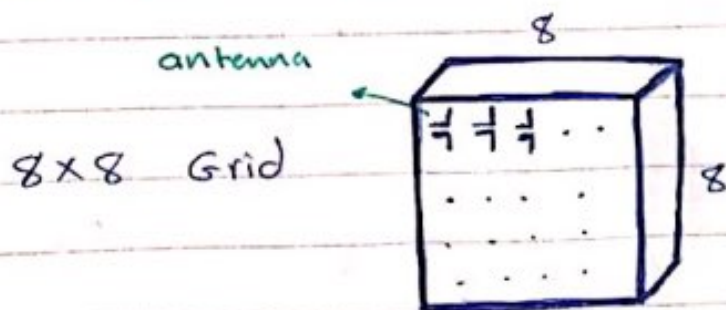 8
antenna
8×8 Grid
8